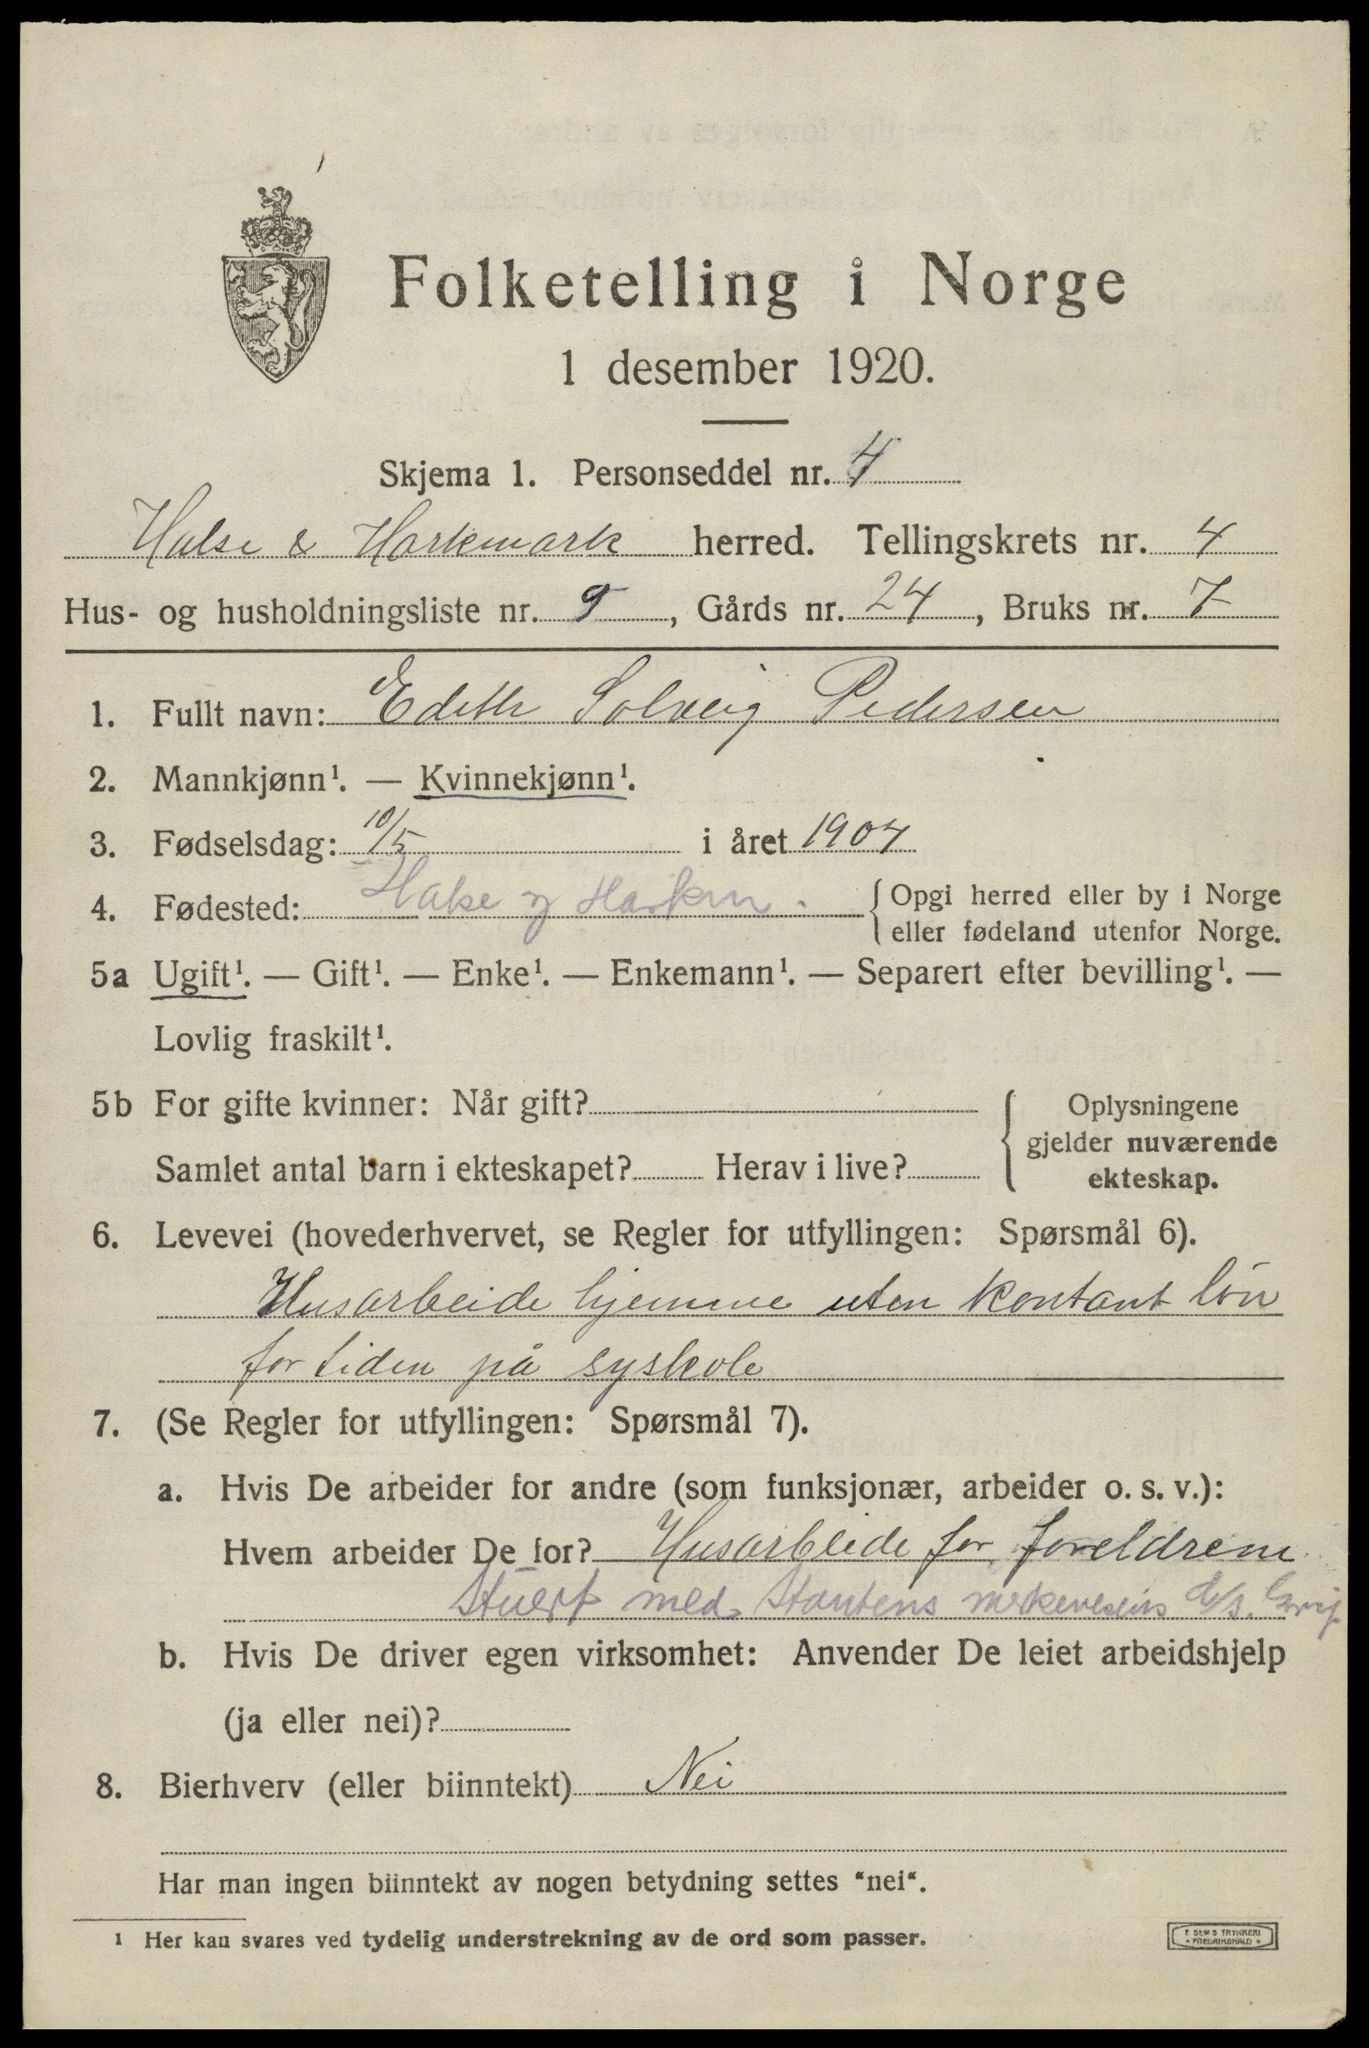 Folketelling i Norge
1 desember 1920.
Skjema 1. Personseddel nr. 4
Halse & Harkmark herred. Tellingskrets nr. 4
Hus- og husholdningsliste nr. 9, Gårds nr. 24, Bruks nr. 7
1. Fullt navn: Edith Solveig Pedersen
2. Mannkjønn¹. — Kvinnekjønn¹.
3. Fødselsdag: 10/5 i året 1904
4. Fødested: Halse og Harkm. { Opgi herred eller by i Norge
eller fødeland utenfor Norge.
5a Ugift¹. — Gift¹. — Enke¹. — Enkemann¹. — Separert efter bevilling¹. —
Lovlig fraskilt¹.
5b For gifte kvinner: Når gift? { Oplysningene
gjelder nuværende
Samlet antal barn i ekteskapet? Herav i live? ekteskap.
6. Levevei (hovederhvervet, se Regler for utfyllingen: Spørsmål 6).
Husarbeide hjemme uten kontant løn
for tiden på syskole
7. (Se Regler for utfyllingen: Spørsmål 7).
a. Hvis De arbeider for andre (som funksjonær, arbeider o. s. v.):
Hvem arbeider De for? Husarbeide for foreldrene
Stuert med Stantens merkevesens
b. Hvis De driver egen virksomhet: Anvender De leiet arbeidshjelp
(ja eller nei)?
8. Bierhverv (eller biinntekt) Nei
Har man ingen biinntekt av nogen betydning settes "nei".
¹ Her kan svares ved tydelig understrekning av de ord som passer.
F SEM'S TRYKKERI
FREDRIKSHALD